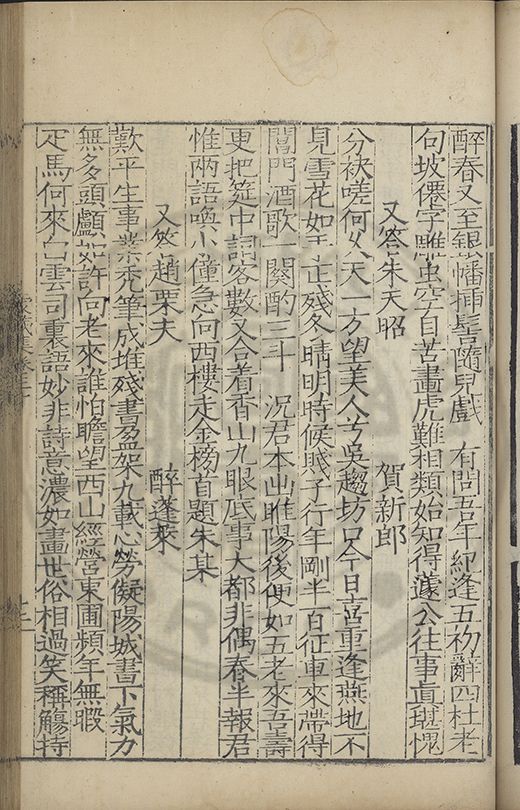 醉春又至銀幡揷髻隨兒戲　有問吾年紀逢五初辭四杜老
句坡僊字雕虫空自苦畫虎難相類始知得蘧公往事真堪愧
又答朱天昭　賀新郎
分袂嗟何久天一方望美人兮吳趨坊口今日喜重逢燕地不
見雪花如玉正殘冬晴明時候賤子行年剛半百征車來帶得
閶門酒歌一闋酌三斗　況君本出睢陽後便如五老來吾壽
更把筵中詞客數又合着香山九眼底事大都非偶春半報君
惟兩語喚小僮急向西樓走金榜首題朱某
又答趙栗夫　醉蓬萊
歎平生事業禿筆成堆殘書盈架九載心勞儗陽城書下氣力
無多頭顱如許向老來誰怕瞻望西山經營東圃頻年無暇
疋馬何來白雲司裏語妙非詩意濃如畫世俗相過笑稱觴持